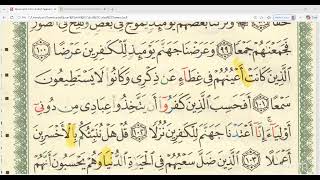 وَتَرَكْنَا بَعْضَهُمْ يَوْمَئِذٍ يَمُوجُ فِي بَعْضٍ وَنُفِخَ فِي الصُّورِ
فَجَمَعْنَٰهُمْ جَمْعًا ٩٩ وَعَرَضْنَا جَهَنَّمَ يَوْمَئِذٍ لِّلْكَٰفِرِينَ عَرْضًا ١٠٠
الَّذِينَ كَانَتْ أَعْيُنُهُمْ فِي غِطَآءٍ عَن ذِكْرِي وَكَانُوا لَا يَسْتَطِيعُونَ
سَمْعًا ١٠١ أَفَحَسِبَ الَّذِينَ كَفَرُوا أَن يَتَّخِذُوا عِبَادِي مِن دُونِي
أَوْلِيَآءَ إِنَّآ أَعْتَدْنَا جَهَنَّمَ لِلْكَٰفِرِينَ نُزُلًا ١٠٢ قُلْ هَلْ نُنَبِّئُكُم بِالْأَخْسَرِينَ
أَعْمَٰلًا ١٠٣ الَّذِينَ ضَلَّ سَعْيُهُمْ فِي الْحَيَوٰةِ الدُّنْيَا وَهُمْ يَحْسَبُونَ أَنَّهُمْ